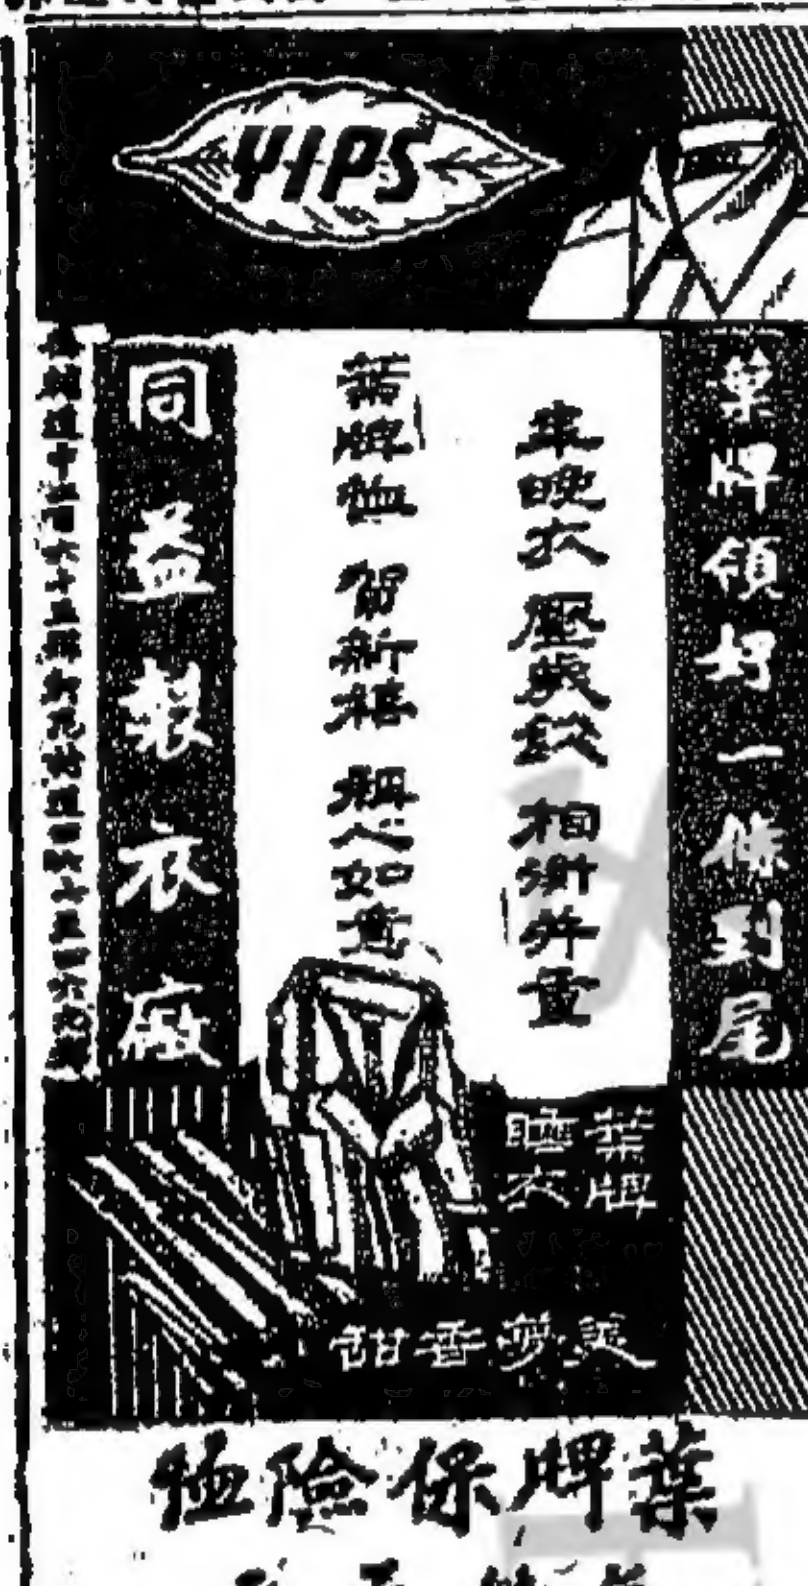 YIPS
葉牌領好一條到尾
年晚衣 壓歲錢 相衡并重
葉牌恤 賀新禧 稱心如意
同益製衣廠
葉牌
睡衣
美夢香甜
葉牌保險恤